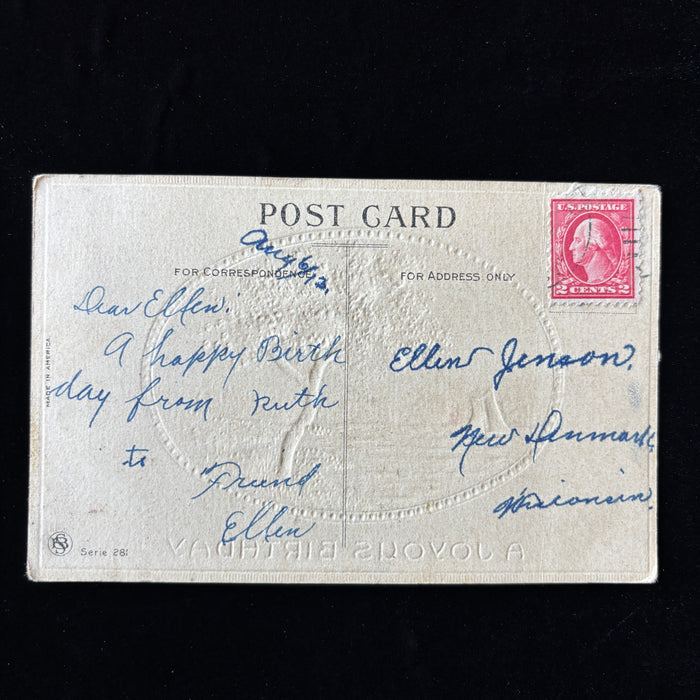 POST CARD
U.S. POSTAGE
2 CENTS 2
Aug 6/12.
FOR CORRESPONDENCE
FOR ADDRESS ONLY
Dear Ellen.
A happy Birth
day from Ruth
to Friend
Ellen
Ellen Jenson.
New Denmark,
Wisconsin.
MADE IN AMERICA
Serie 281
A JOYOUS BIRTHDAY